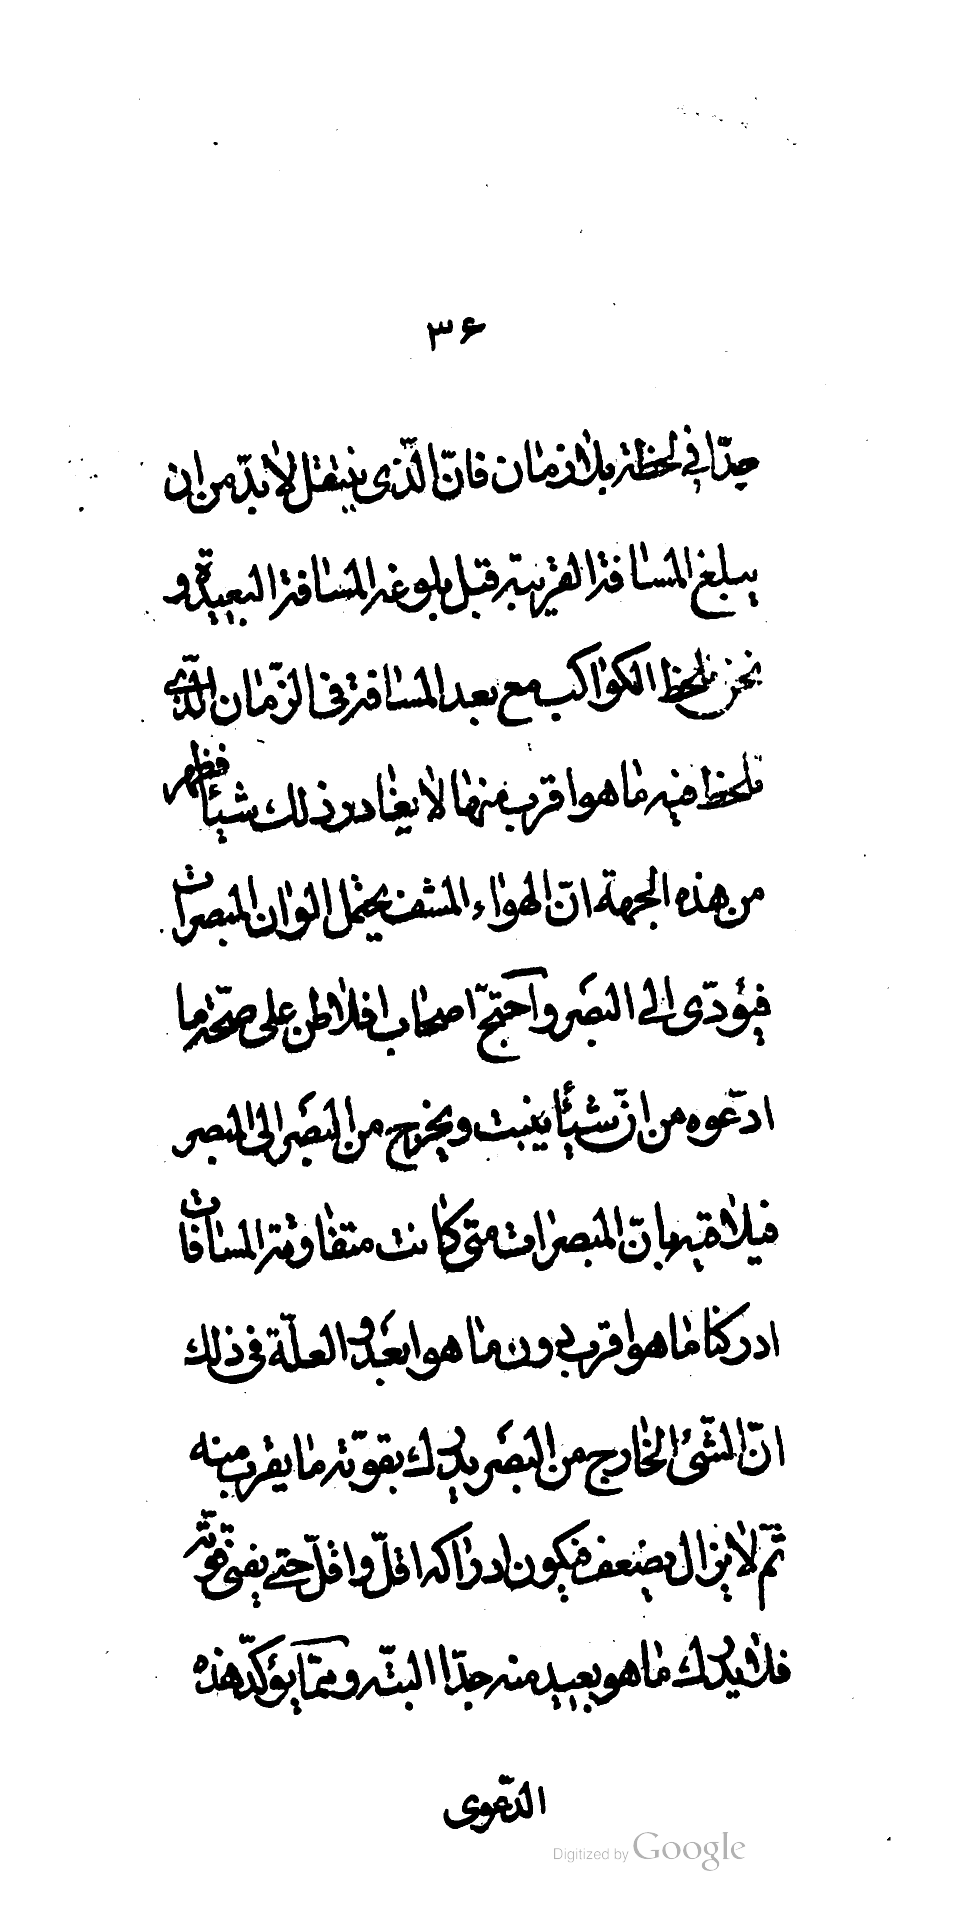 ۳۶
جدّا في لحظة بلا زمان فانّ الذى ينتقل لا بدّ من ان
يبلغ المسافة القريبة قبل بلوغه المسافة البعيدة و
نحن نلحظ الكواكب مع بعد المسافة فى الزّمان الّذى
نلحظ فيه ما هو اقرب منها لا يغادر ذلك شيئاً فظهر
من هذه الجهة انّ الهواء المشف يحتمل الوان المبصرات
فيؤدّى الى البصر واحتجّ اصحاب افلاطن على صحّة ما
ادّعوه من انّ شيئاً ينبث ويخرج من البصر الى المبصر
فيلاقيه بانّ المبصرات متى كانت متفاوتة المسافات
ادركنا ما هو اقرب دون ما هو ابعد و العلّة فى ذلك
انّ الشّئ الخارج من البصر يدرك بقوّته ما يقرب منه
ثمّ لا يزال يضعف فيكون ادراكه اقلّ و اقلّ حتى يفنى قوّته
فلا يدرك ما هو بعيد منه جدّا البتّه و ممّا يؤكّد هذه
الدّعوى
Digitized by Google